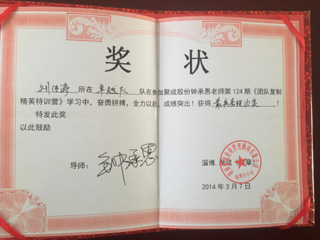 奖 状
所在 卓越 队在参加聚成股份钟承恩老师第124期《团队复制
精英特训营》学习中，奋勇拼搏，全力以赴，成绩突出！获得 最具表现力奖 ！
特发此奖
以此鼓励
导师：钟承恩
淄博
2014年3月7日